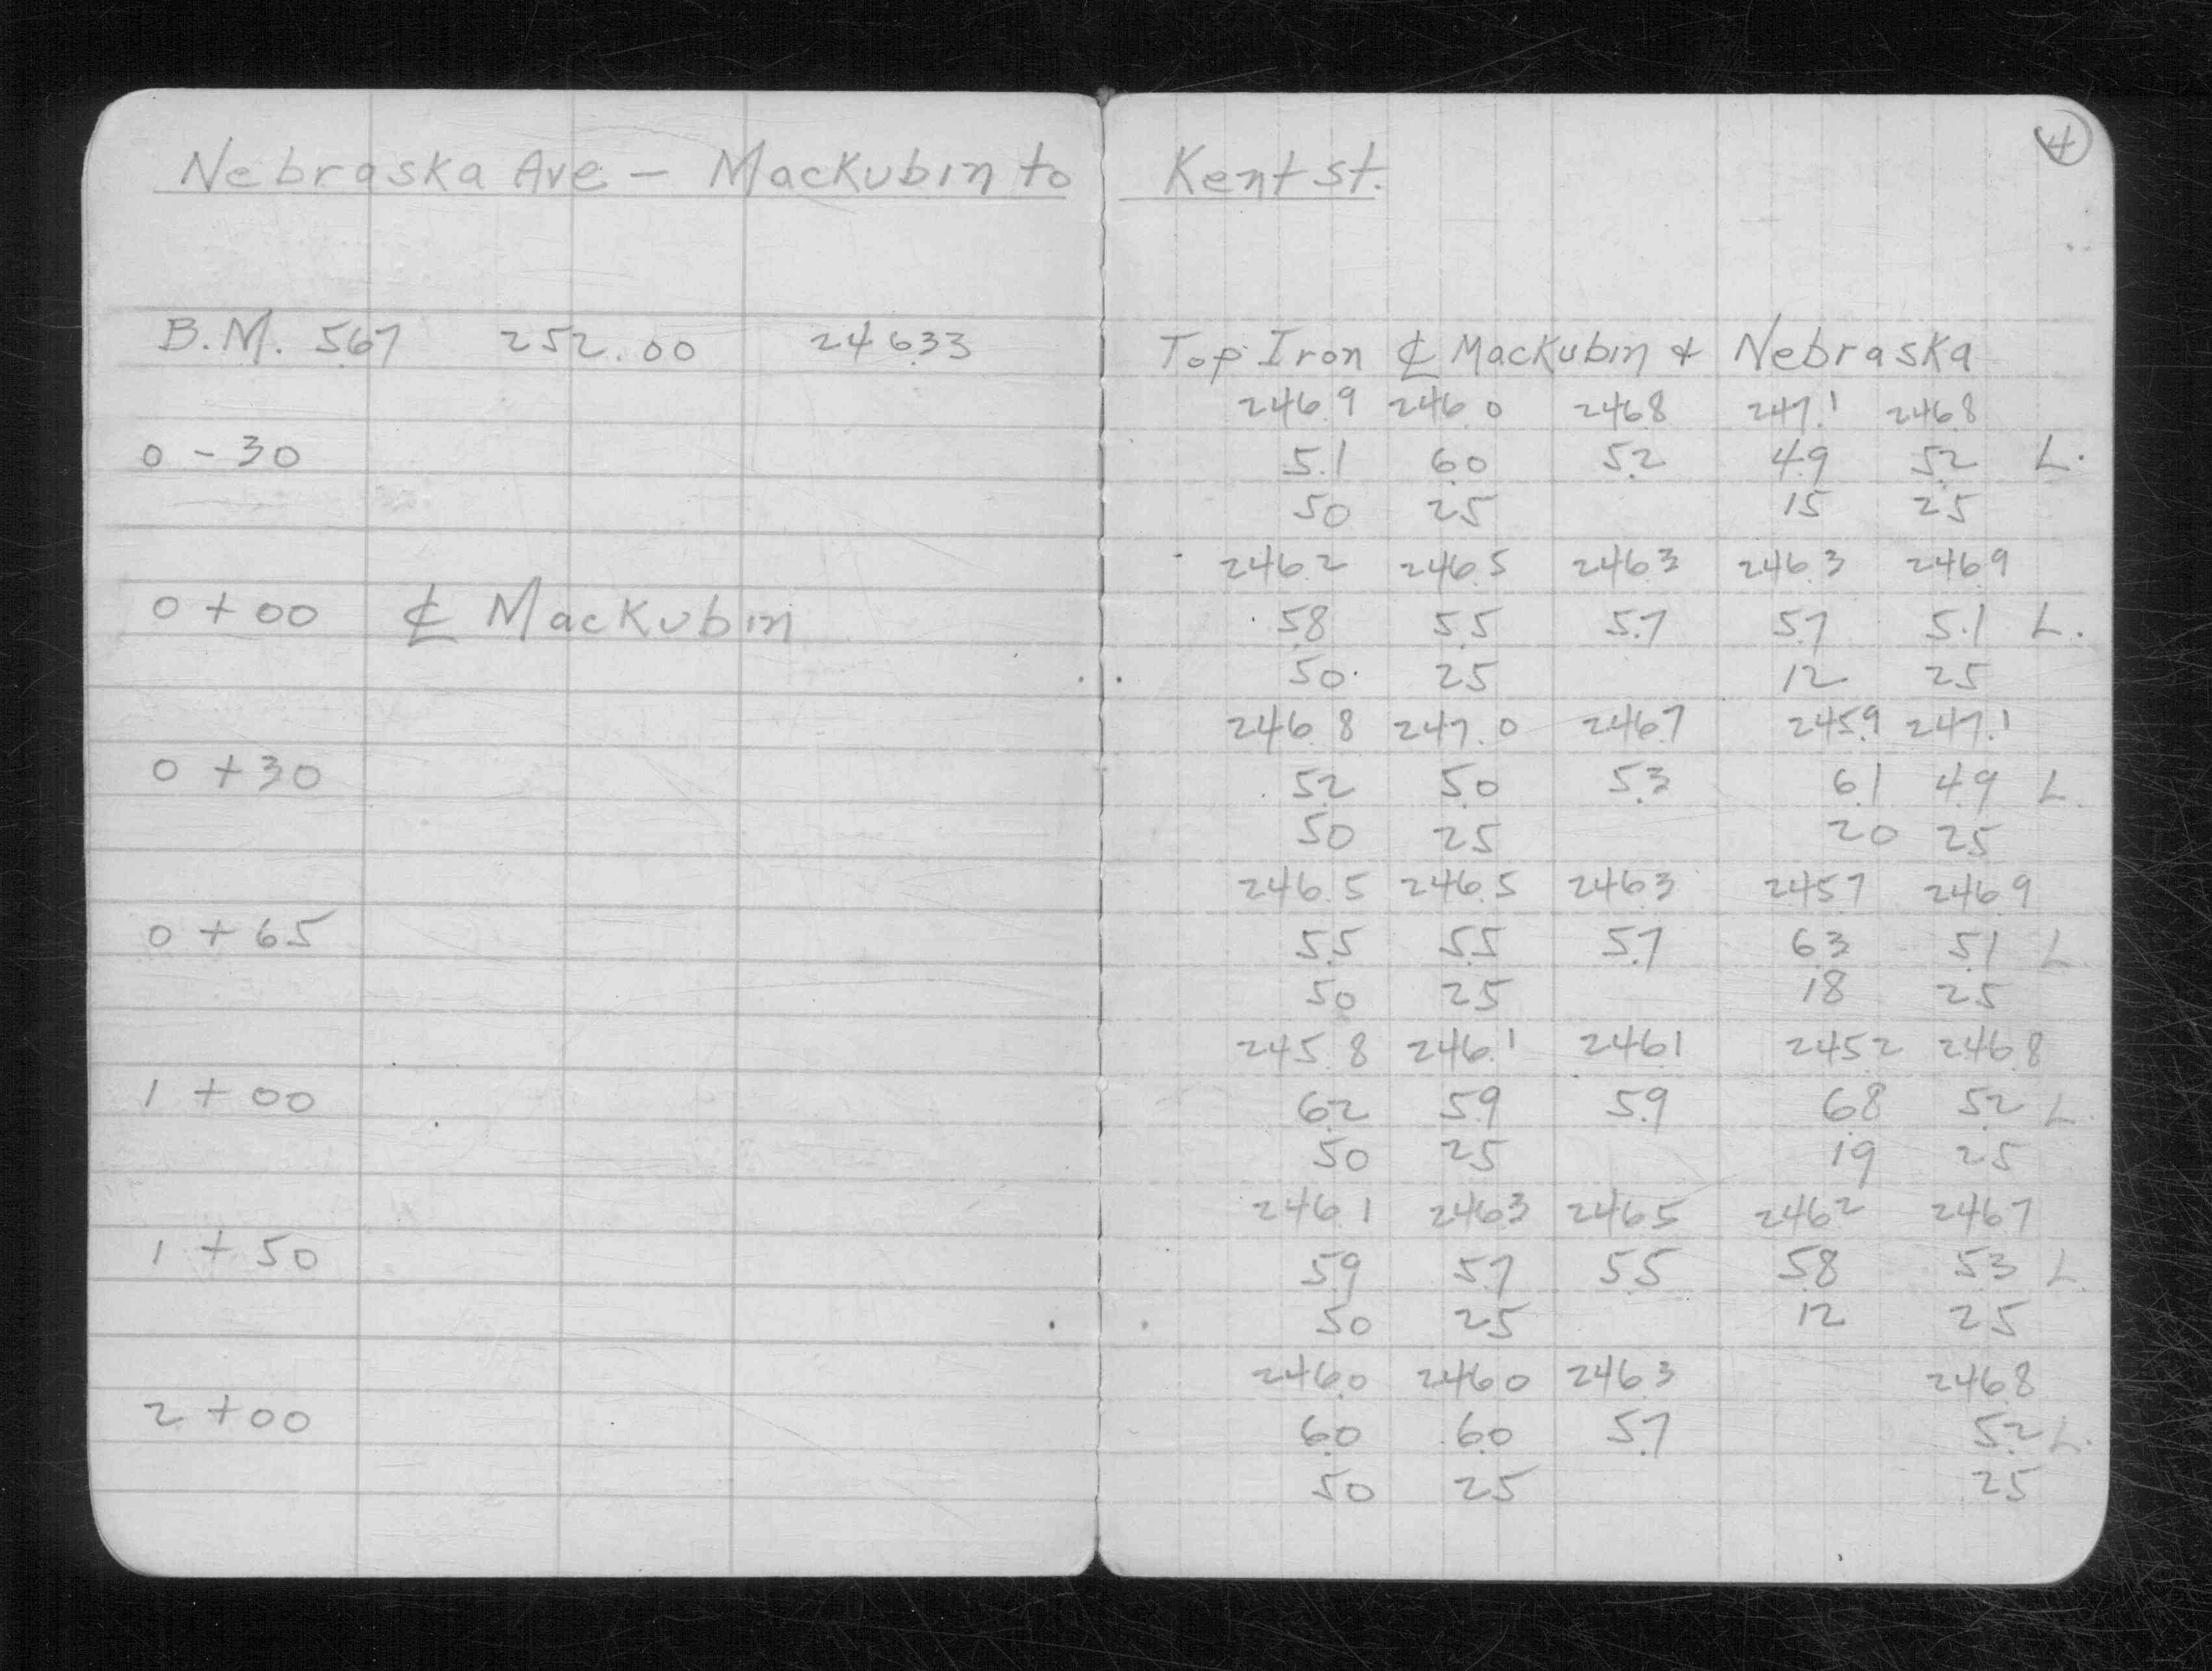 Nebraska Ave - Mackubin to Kent st.
4
B.M. 5.67 252.00 246.33 Top Iron ℄ Mackubin & Nebraska
246.9 246.0 246.8 247.1 246.8
0 - 30 5.1 6.0 5.2 4.9 5.2 L.
50 25 15 25
246.2 246.5 246.3 246.3 246.9
0 + 00 ℄ Mackubin 5.8 5.5 5.7 5.7 5.1 L.
50 25 12 25
246.8 247.0 246.7 245.9 247.1
0 + 30 5.2 5.0 5.3 6.1 4.9 L.
50 25 20 25
246.5 246.5 246.3 245.7 246.9
0 + 65 5.5 5.5 5.7 6.3 5.1 L
50 25 18 25
245.8 246.1 246.1 245.2 246.8
1 + 00 6.2 5.9 5.9 6.8 5.2 L.
50 25 19 25
246.1 246.3 246.5 246.2 246.7
1 + 50 5.9 5.7 5.5 5.8 5.3 L.
50 25 12 25
246.0 246.0 246.3 246.8
2 + 00 6.0 6.0 5.7 5.2 L.
50 25 25